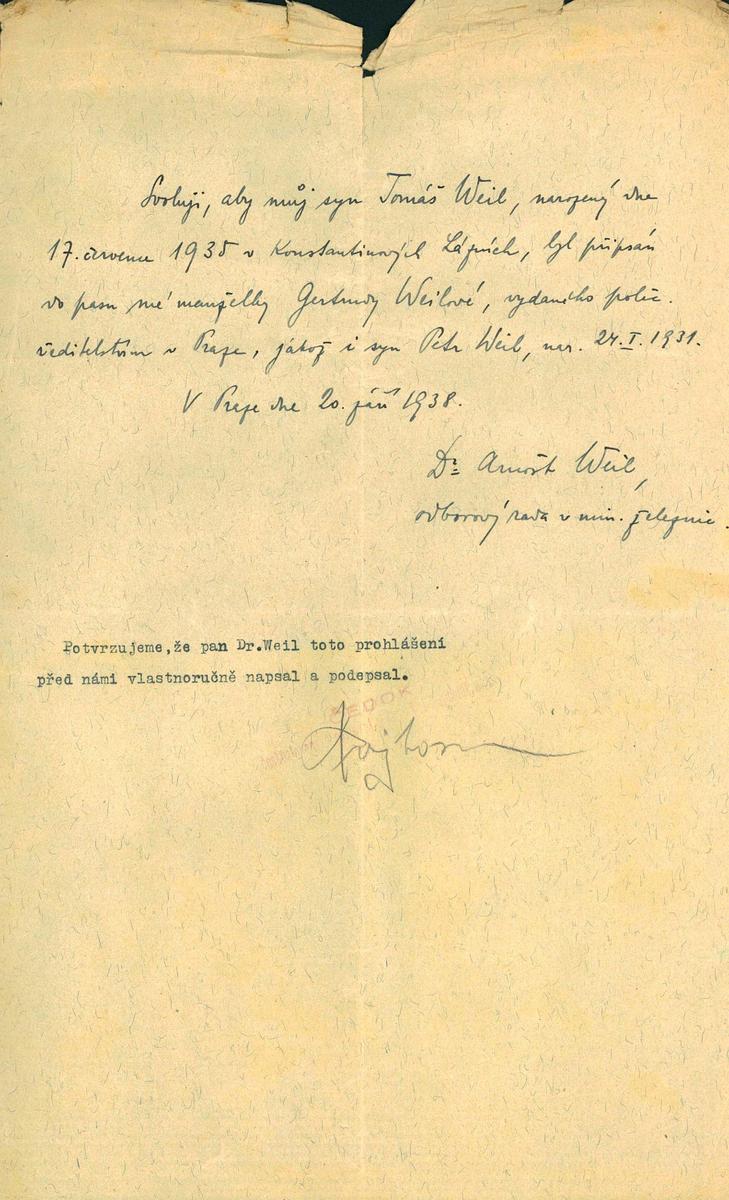 Svoluji, aby můj syn Tomáš Weil, narozený dne
17. července 1935 v Konstantinových Lázních, byl připsán
do pasu mé manželky Gertrudy Weilové, vydaného polic.
ředitelstvím v Praze, jakož i syn Petr Weil, nar. 24.I.1931.
V Praze dne 20. září 1938.
Dr. Arnošt Weil,
odborový rada v min. železnic.
Potvrzujeme, že pan Dr.Weil toto prohlášení
před námi vlastnoručně napsal a podepsal.